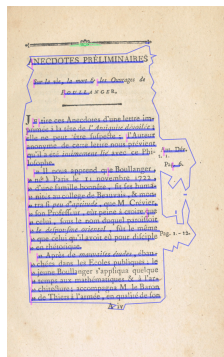 ANECDOTES PRÉLIMINAIRES
Sur la vie, la mort & les Ouvrages de
BOULLANGER.
Je tire ces Anecdotes d'une lettre im-
primée à la tête de l'Antiquité dévoilée :
elle ne peut être suspecte ; l'Auteur
anonyme de cette lettre nous prévient
qu'il a été intimement lié avec ce Phi-
losophe.
Il nous apprend que Boullanger,
né à Paris le 11 novembre 1722,
d'une famille honnête, fit ses huma-
nités au college de Beauvais, & mon-
tra si peu d'aptitude, que M. Crévier,
son Professeur, eut peine à croire que
celui, sous le nom duquel paroissoit
le despotisme oriental, fût le même
que celui qu'il avoit eu pour disciple
en rhétorique.
Après de mauvaises études, ébau-
chées dans les Ecoles publiques, le
jeune Boullanger s'appliqua quelque
temps aux mathématiques & à l'ar-
chitecture ; accompagna M. le Baron
de Thiers à l'armée, en qualité de son
Ant. Dév.
t. 1.
Pag. 1.-12.